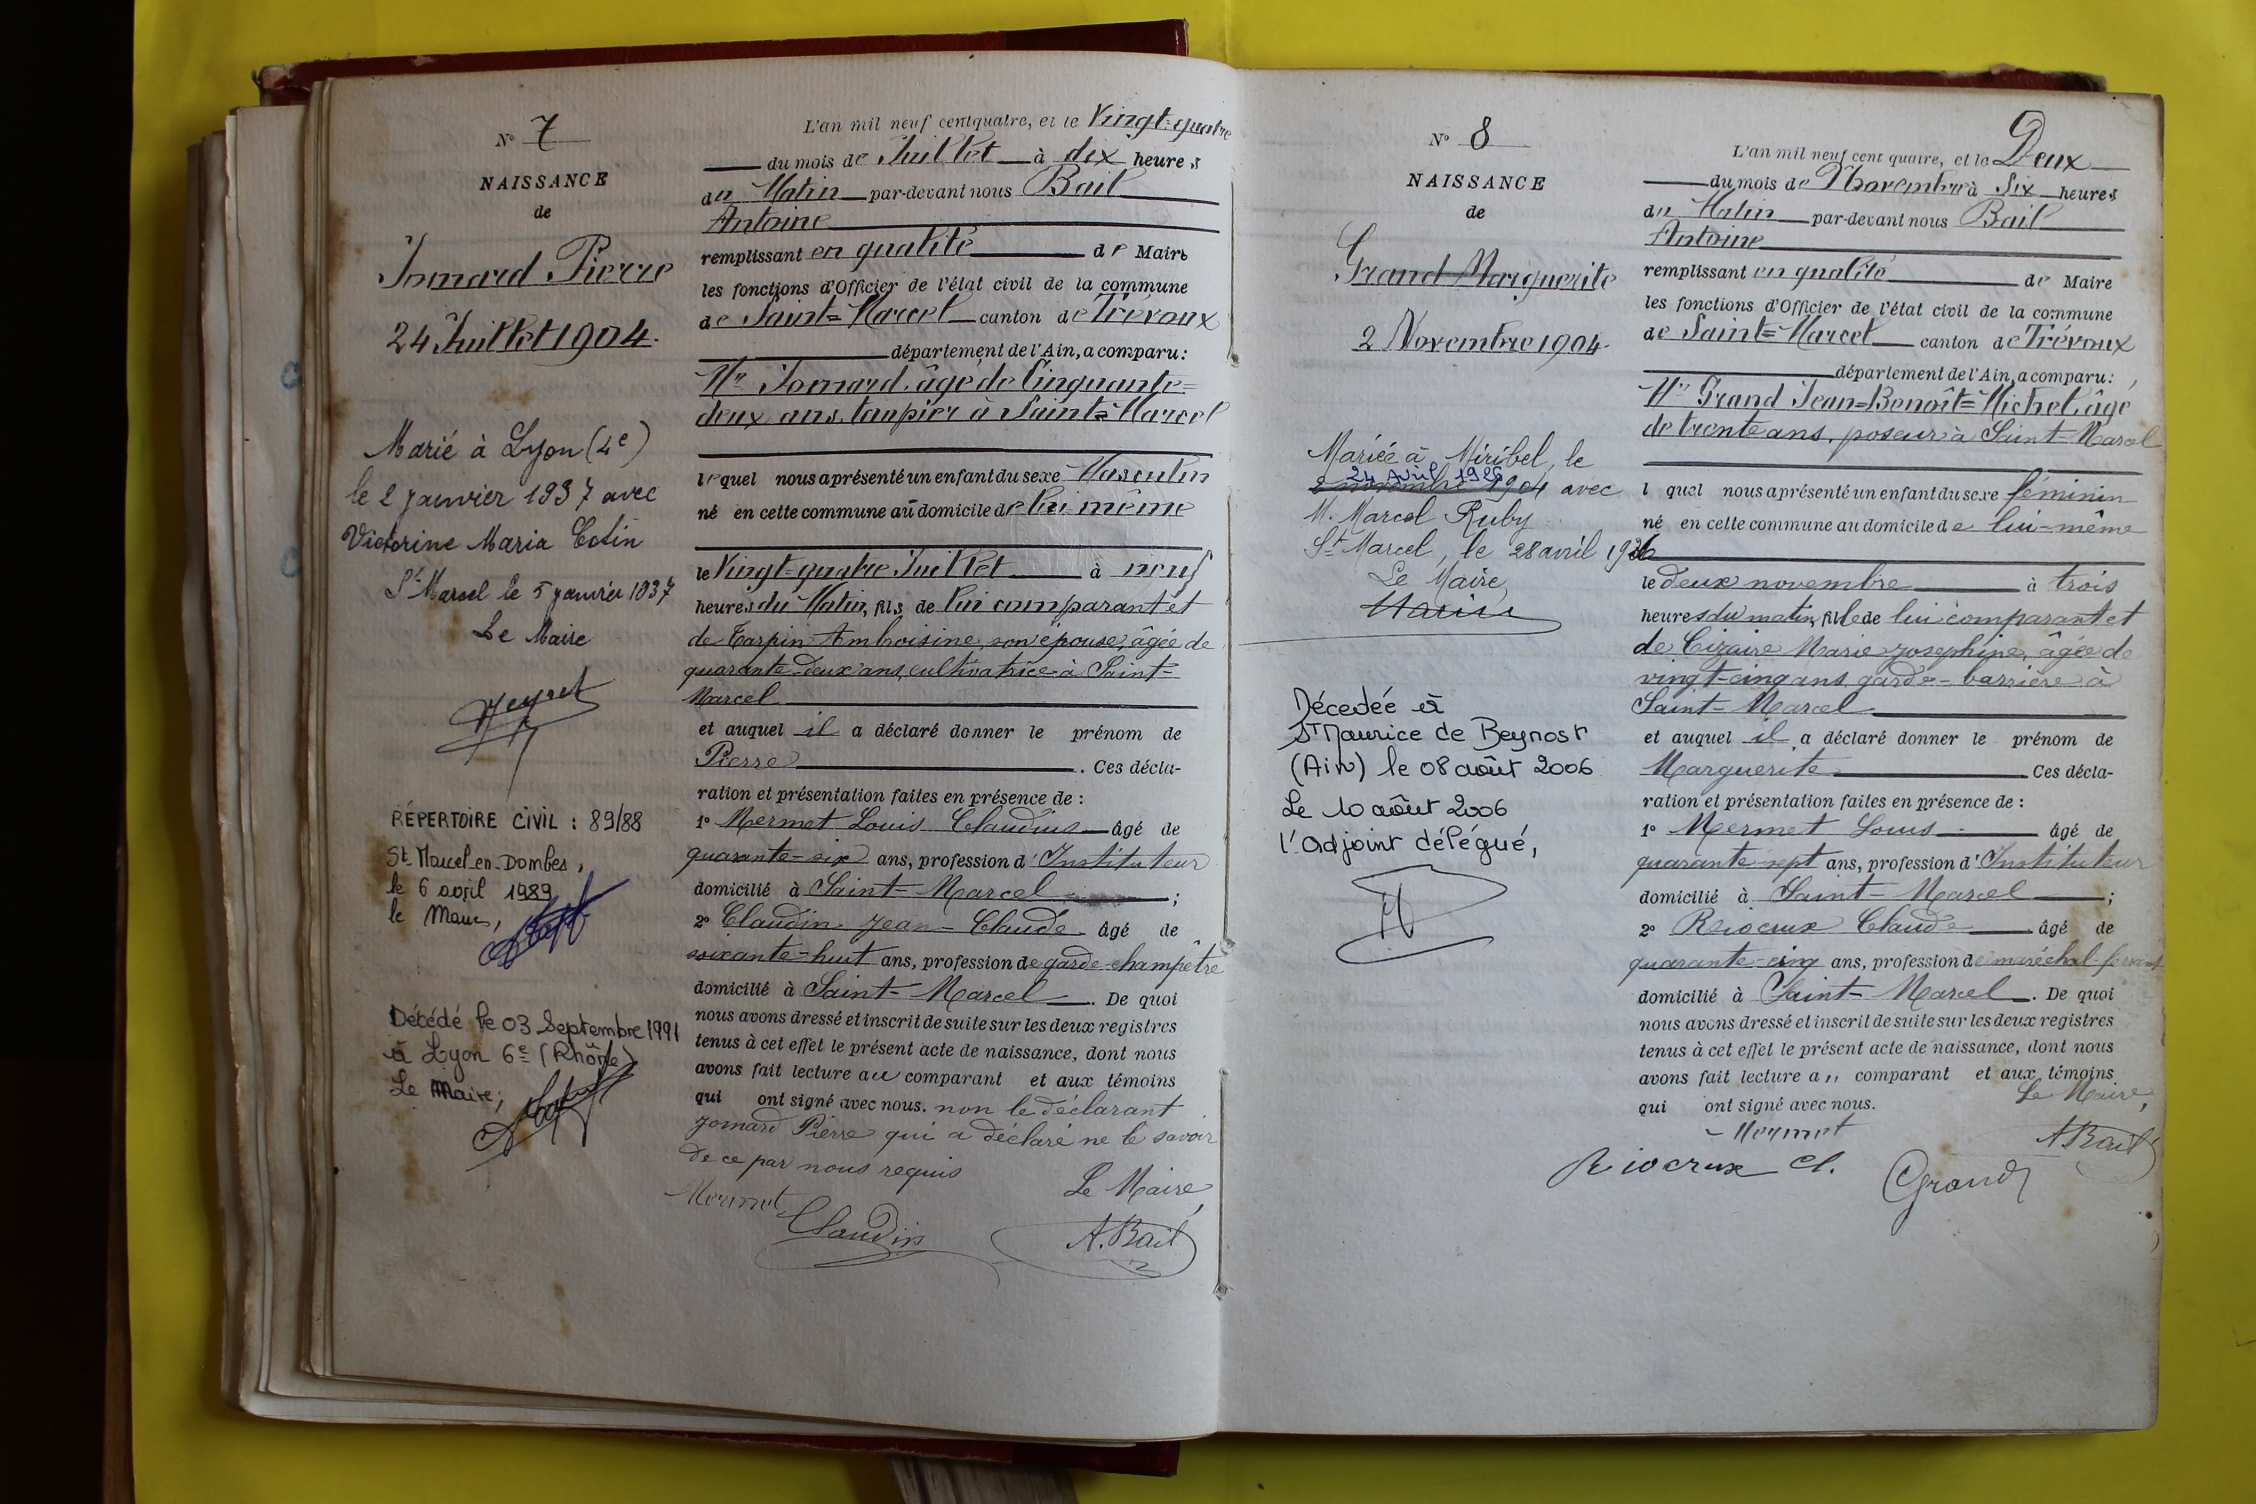 N° 7
NAISSANCE
de
Jomard Pierre
24 Juillet 1904.
Marié à Lyon (4e)
le 2 janvier 1937 avec
Victorine Maria Cotin
St Marcel le 5 janvier 1937
Le Maire
RÉPERTOIRE CIVIL : 89/88
St Marcel-en-Dombes,
le 6 avril 1989
le Maire,
Décédé le 03 Septembre 1991
à Lyon 6e (Rhône)
Le Maire,
L'an mil neuf cent quatre, et le Vingt=quatre
du mois de Juillet à dix heures
du Matin par-devant nous Bail
Antoine
remplissant en qualité de Maire
les fonctions d'Officier de l'état civil de la commune
de Saint=Marcel canton de Trévoux
département de l'Ain, a comparu :
Mr Jomard âgé de Cinquante=
deux ans, taupier à Saint=Marcel
lequel nous a présenté un enfant du sexe Masculin
né en cette commune au domicile de lui même
le Vingt=quatre Juillet à neuf
heures du Matin, fils de lui comparant et
de Tarpin Ambroisine, son épouse, âgée de
quarante-deux ans, cultivatrice à Saint-
Marcel
et auquel il a déclaré donner le prénom de
Pierre . Ces décla-
ration et présentation faites en présence de :
1° Mermet Louis Claudius âgé de
quarante-six ans, profession d'Instituteur
domicilié à Saint-Marcel ;
2° Claudin Jean-Claude âgé de
soixante-huit ans, profession de garde-champêtre
domicilié à Saint-Marcel . De quoi
nous avons dressé et inscrit de suite sur les deux registres
tenus à cet effet le présent acte de naissance, dont nous
avons fait lecture au comparant et aux témoins
qui ont signé avec nous. non le déclarant
Jomard Pierre qui a déclaré ne le savoir
de ce par nous requis
Le Maire
Mermet
Claudin
A. Bail
N° 8
NAISSANCE
de
Grand Marguerite
2 Novembre 1904.
Mariée à Miribel, le
24 Avril 1926
2 novembre 1904 avec
M. Marcel Ruby
St Marcel, le 28 avril 1926
Le Maire
Décédée à
ST Maurice de Beynost
(Ain) le 08 août 2006
Le 10 août 2006
l'adjoint délégué,
L'an mil neuf cent quatre, et le Deux
du mois de Novembre à Six heures
du Matin par-devant nous Bail
Antoine
remplissant en qualité de Maire
les fonctions d'Officier de l'état civil de la commune
de Saint=Marcel canton de Trévoux
département de l'Ain, a comparu :
Mr Grand Jean=Benoît=Michel âgé
de trente ans, poseur à Saint-Marcel
l quel nous a présenté un enfant du sexe féminin
né en cette commune au domicile de lui-même
le deux novembre à trois
heures du matin, fille de lui comparant et
de Cizaire Marie Josephine, âgée de
vingt-cinq ans, garde-barrière à
Saint-Marcel
et auquel il a déclaré donner le prénom de
Marguerite Ces décla-
ration et présentation faites en présence de :
1° Mermet Louis âgé de
quarante-sept ans, profession d'Instituteur
domicilié à Saint-Marcel ;
2° Riocrux Claude âgé de
quarante-cinq ans, profession de maréchal-ferrant
domicilié à Saint-Marcel . De quoi
nous avons dressé et inscrit de suite sur les deux registres
tenus à cet effet le présent acte de naissance, dont nous
avons fait lecture a" comparant et aux témoins
qui ont signé avec nous. Le Maire,
Mermet
A Bail
Riocrux Cl.
Grand